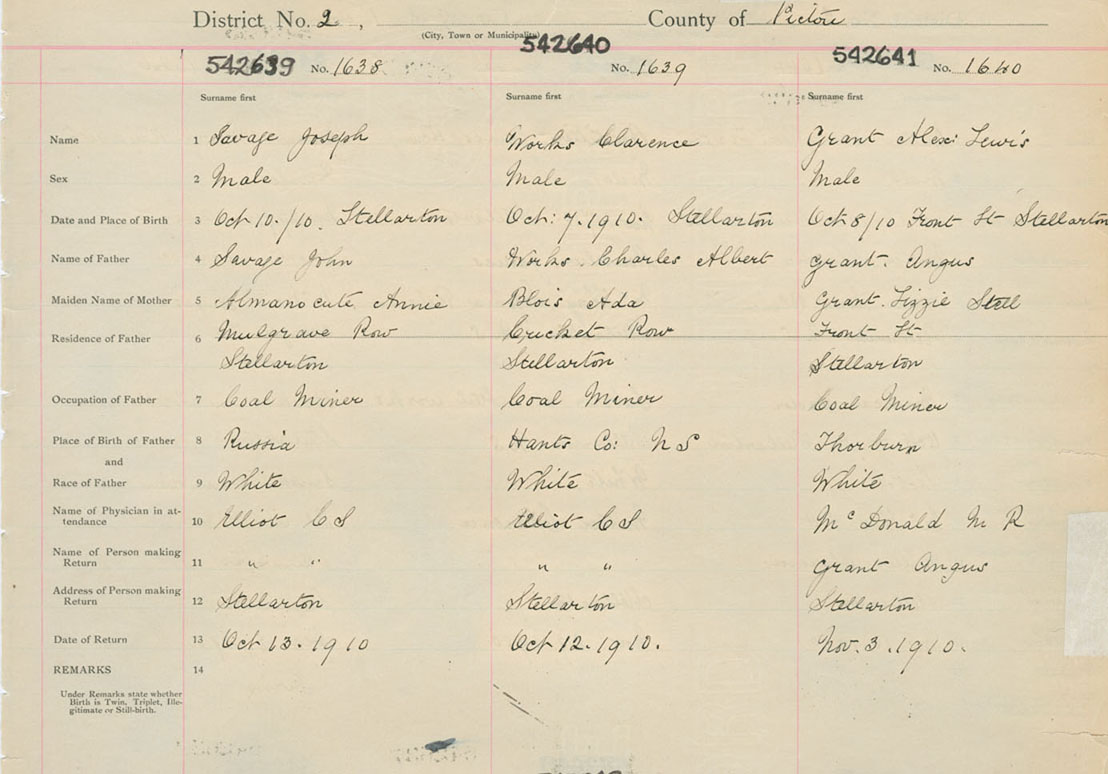 District No. 2, County of Pictou
(City, Town or Municipality)
542639 No. 1638 542640 No. 1639 542641 No. 1640
Surname first Surname first Surname first
Name 1 Savage Joseph Works Clarence Grant Alex: Lewis
Sex 2 Male Male Male
Date and Place of Birth 3 Oct 10./10. Stellarton Oct: 7. 1910. Stellarton Oct 8/10 Front St Stellarton
Name of Father 4 Savage John Works. Charles Albert Grant. Angus
Maiden Name of Mother 5 Almanocute Annie Blois Ada Grant. Lizzie Stell
Residence of Father 6 Mulgrave Row Cricket Row Front St
Stellarton Stellarton Stellarton
Occupation of Father 7 Coal Miner Coal Miner Coal Miner
Place of Birth of Father 8 Russia Hants Co: N S Thorburn
and
Race of Father 9 White White White
Name of Physician in at-
tendance 10 Elliot C S Elliot C S McDonald M R
Name of Person making
Return 11 " " " " Grant Angus
Address of Person making
Return 12 Stellarton Stellarton Stellarton
Date of Return 13 Oct 13. 1910 Oct 12. 1910. Nov. 3. 1910.
REMARKS 14
Under Remarks state whether
Birth is Twin, Triplet, Ille-
gitimate or Still-birth.